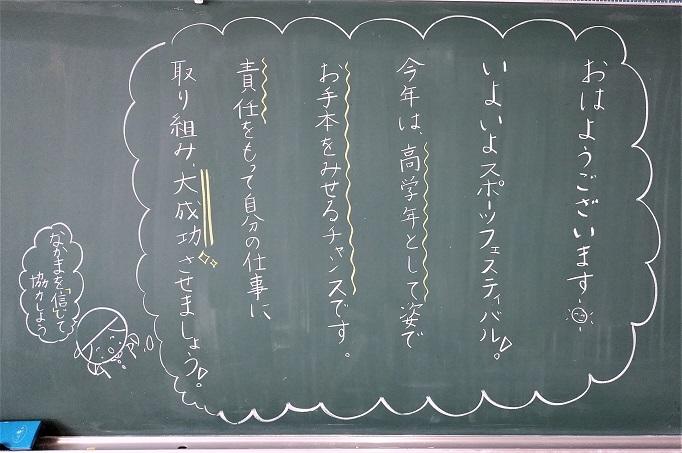 おはようございます
いよいよスポーツフェスティバル!。
今年は、高学年として姿で
お手本をみせるチャンスです。
責任をもって自分の仕事に
取り組み、大成功させましょう!。
なかまを「信」じて
協力しよう